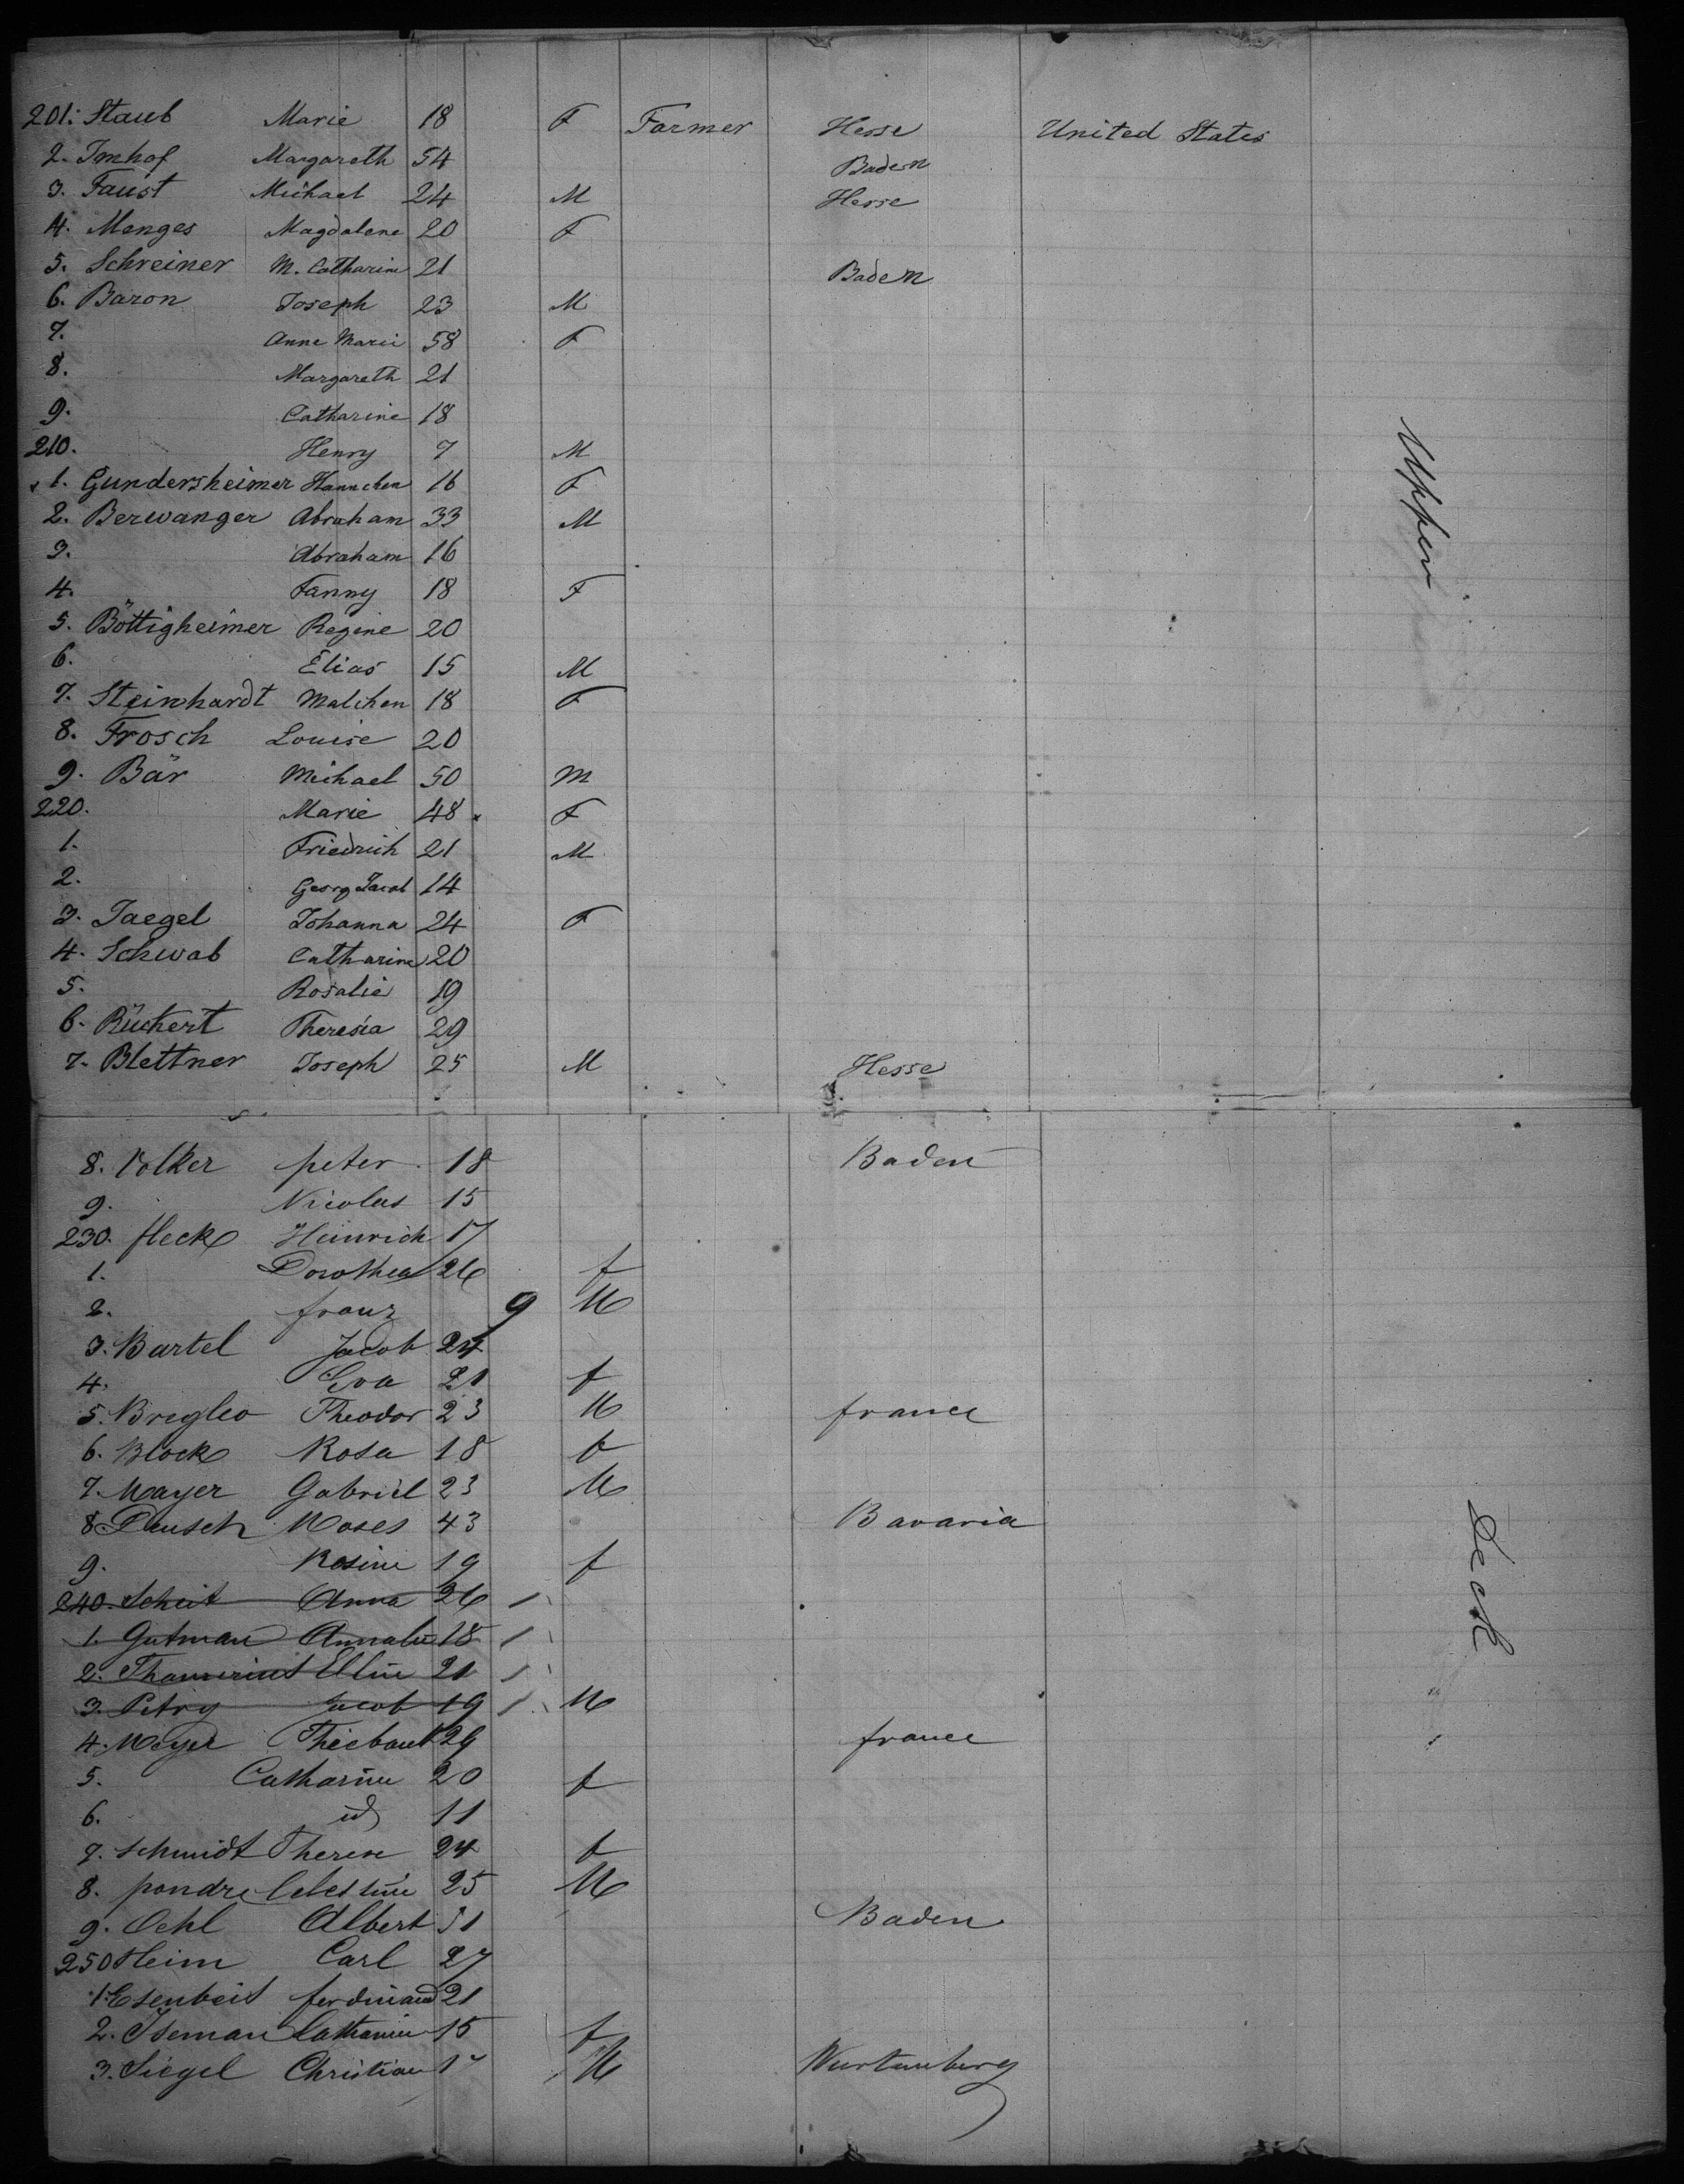 201. Staub Marie 18 F Farmer Hesse United States
2. Imhof Margareth 54 Baden
3. Faust Michael 24 M Hesse
4. Menges Magdalene 20 F
5. Schreiner M. Catharine 21 Baden
6. Baron Joseph 23 M
7. Anne Marie 58 F
8. Margareth 21
9. Catharine 18
210. Henry 7 M
1. Gundersheimer Hannchen 16 F
2. Berwanger Abraham 33 M
3. Abraham 16
4. Fanny 18 F
5. Böttigheimer Regine 20
6. Elias 15 M
7. Steinhardt Malchen 18 F
8. Frosch Louise 20
9. Bär Michael 50 M
220. Marie 48 F
1. Friedrich 21 M
2. Georg Jacob 14
3. Jaegel Johanna 24 F
4. Schwab Catharine 20
5. Rosalie 19
6. Rückert Theresia 29
7. Blettner Joseph 25 M Hesse
Upper
8. Volker peter 18 Baden
9. Nicolas 15
230. fleck Heinrich 17
1. Dorothea 26 f
2. franz 9 M
3. Bartel Jacob 24
4. Eva 21 f
5. Bregleo Theodor 23 M france
6. Block Rosa 18 f
7. Mayer Gabriel 23 M
8 Deusch Moses 43 Bavaria
9. Rosine 19 f
240. Scheit Anna 26 1
1. Gutman 18 1
2. 21 1
3. Petry Jacob 19 1 M
4. Meyer Thiebaut 29 france
5. Catharine 20 f
6. id 11
7. Schmidt Therese 24 f
8. pondre Celestine 25 M
9. Oehl Albert 51 Baden
250 Heim Carl 27
1. Esenbeis ferdinand 21
2. Iseman Catharine 15 f
3. Siegel Christian 17 M Wurtemberg
Deck